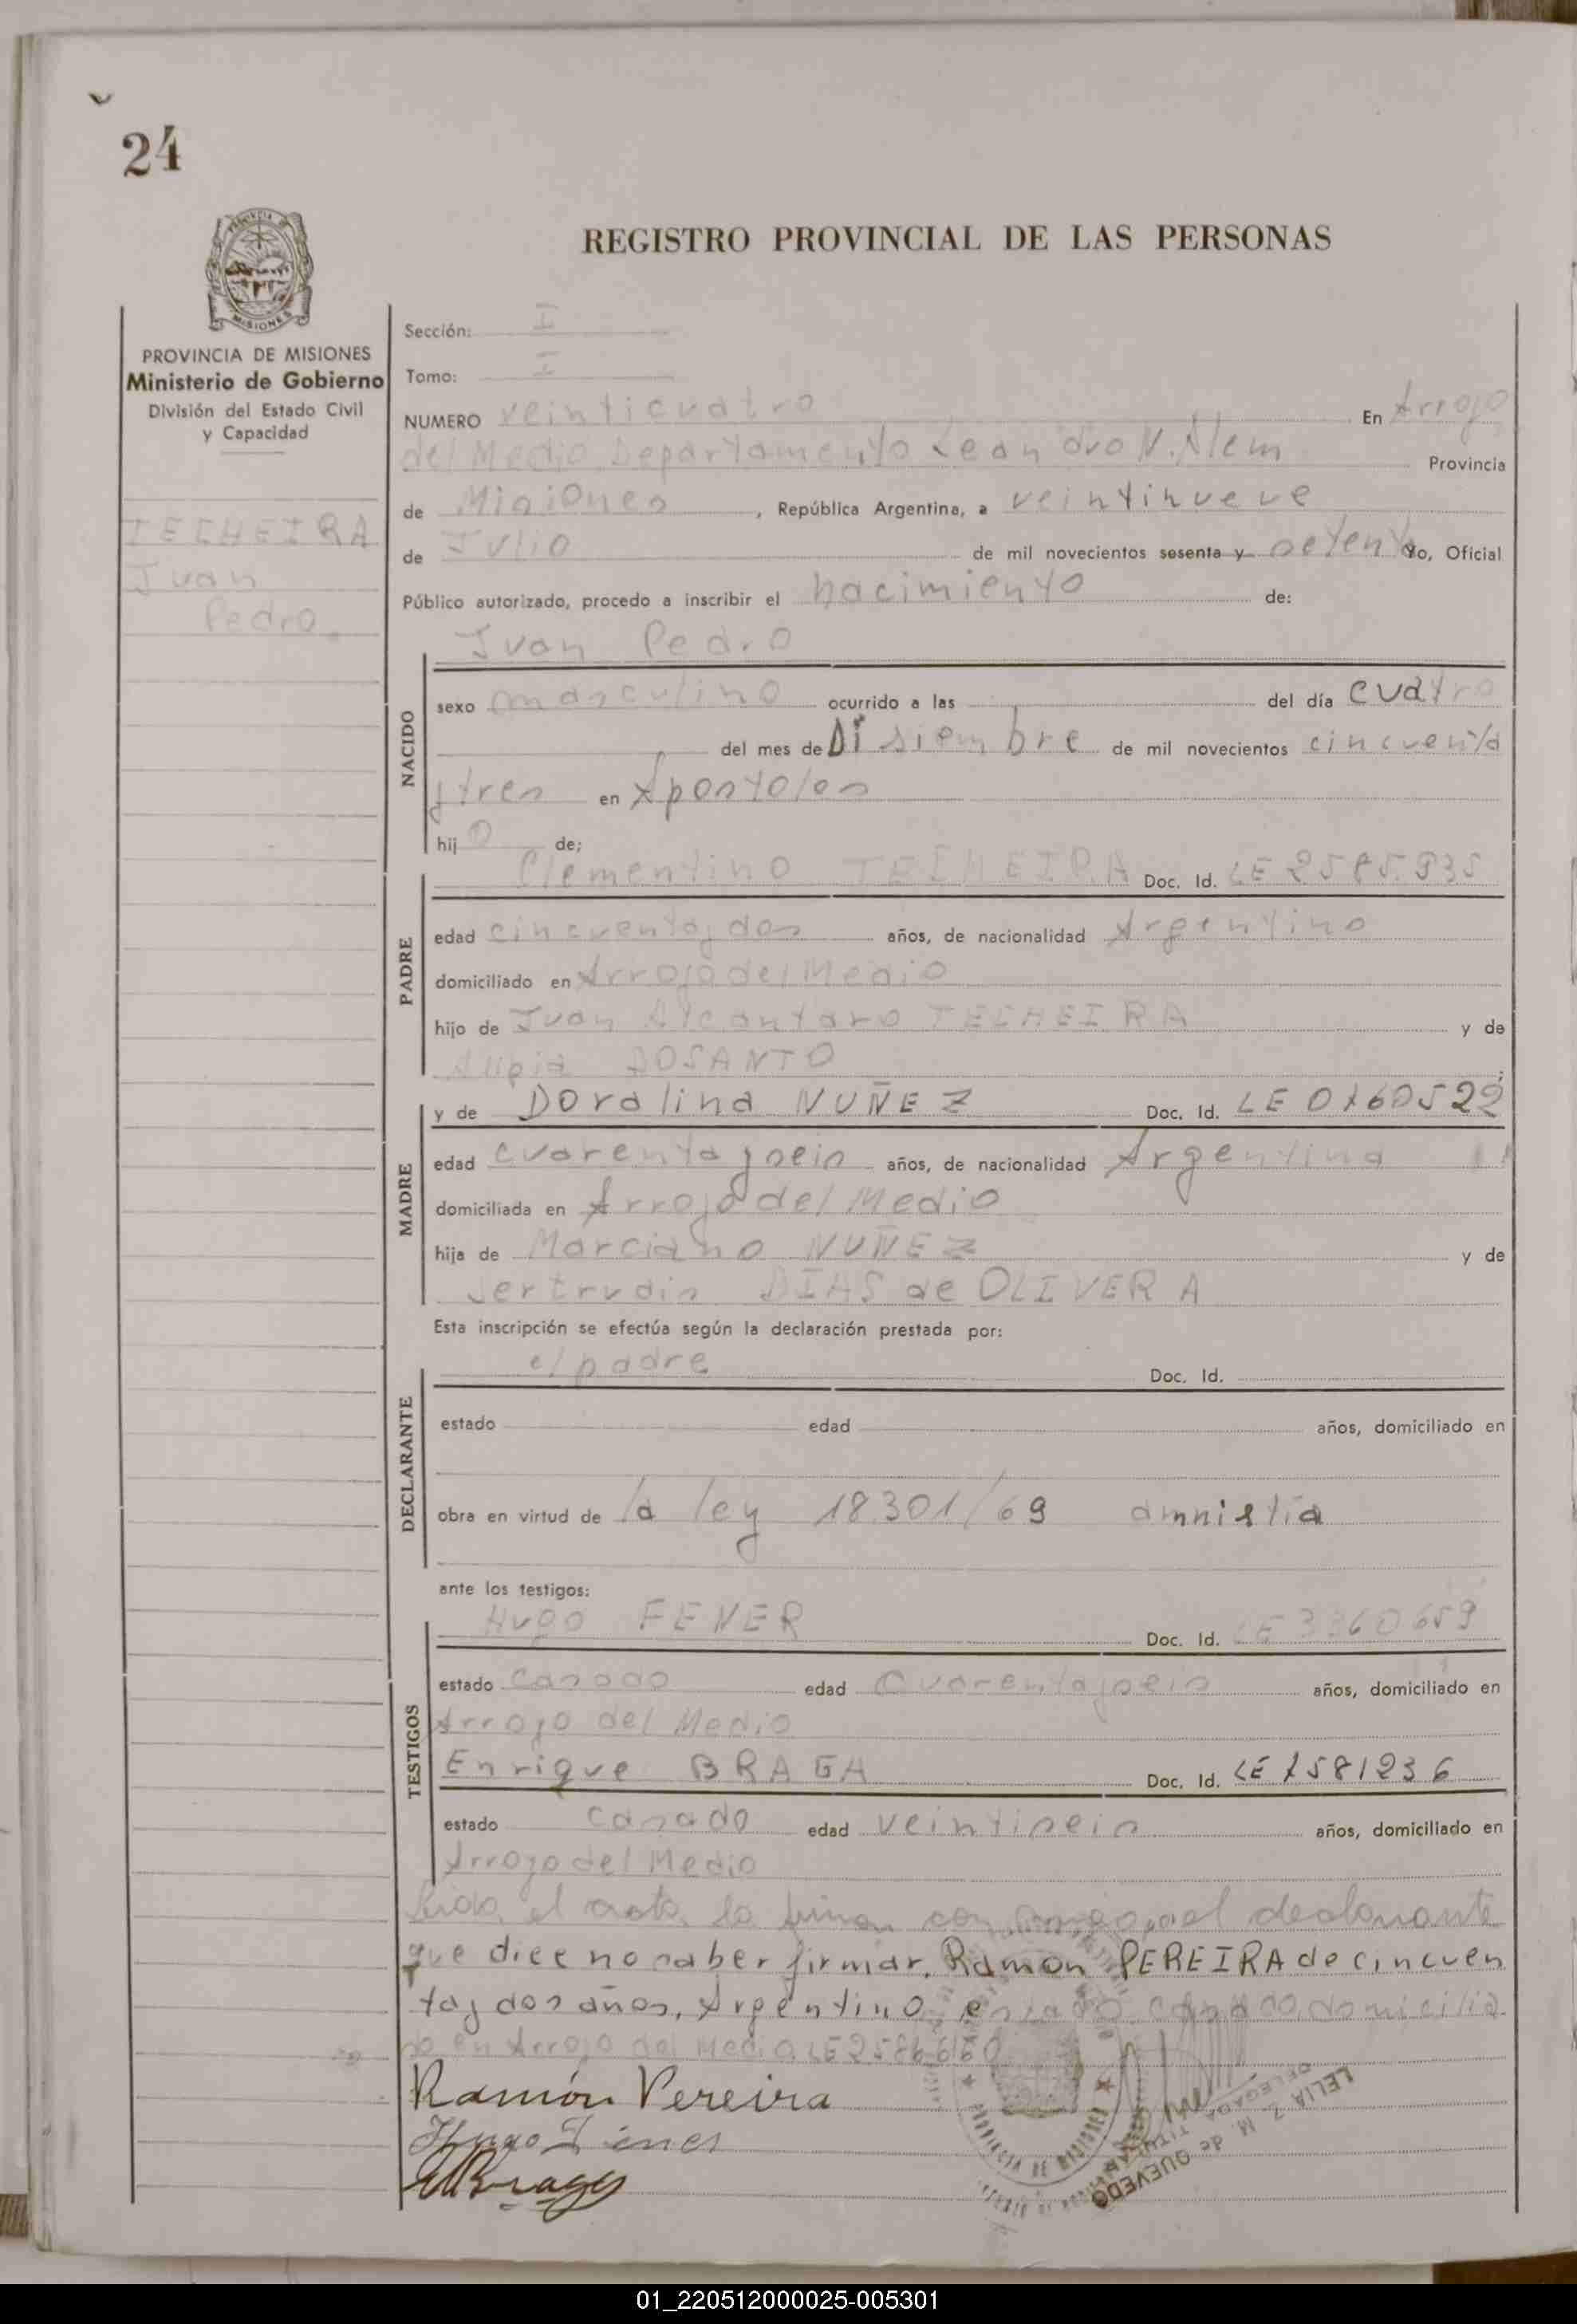 24
REGISTRO PROVINCIAL DE LAS PERSONAS
MISIONES
PROVINCIA DE MISIONES
Ministerio de Gobierno
División del Estado Civil
y Capacidad
TECHEIRA
Juan
Pedro
Sección: I
Tomo: I
NUMERO veinticuatro En Arroyo
del Medio Departamento Leandro N. Alem Provincia
de Misiones, República Argentina, a veintinueve
de Julio de mil novecientos sesenta y setenta Yo, Oficial
Público autorizado, procedo a inscribir el nacimiento de:
Juan Pedro
NACIDO
sexo masculino ocurrido a las del día cuatro
del mes de Disiembre de mil novecientos cincuenta
y tres en Apostoles
hijo de;
PADRE
Clementino TECHEIRA Doc. Id. LE 2585.935
edad cincuenta y dos años, de nacionalidad Argentino
domiciliado en Arroyo del Medio
hijo de Juan Alcantaro TECHEIRA y de
Alipia DOSANTO
MADRE
y de Doralina NUÑEZ Doc. Id. LE
edad cuarenta y seis años, de nacionalidad Argentina
domiciliada en Arroyo del Medio
hija de Marciano NUÑEZ y de
Jertrudis DIAS de OLIVERA
Esta inscripción se efectúa según la declaración prestada por:
DECLARANTE
el padre Doc. Id.
estado edad años, domiciliado en
obra en virtud de la ley 18.301/69 amnistía
ante los testigos:
TESTIGOS
Hugo FENER Doc. Id. LE 3360659
estado casado edad cuarenta y seis años, domiciliado en
Arroyo del Medio
Enrique BRAGA Doc. Id. LE 7581236
estado casado edad veintiseis años, domiciliado en
Arroyo del Medio
Leida el acta la firman con el declarante
que dice no saber firmar, Ramon PEREIRA de cincuen
ta y dos años, Argentino estado casado, domicilia
do en Arroyo del Medio LE 2586660
Ramón Pereira
Hugo Fener
EBraga
PROVINCIA DE MISIONES
LELIA Z. M. de QUEVEDO
DELEGADA TITULAR
01_220512000025-005301